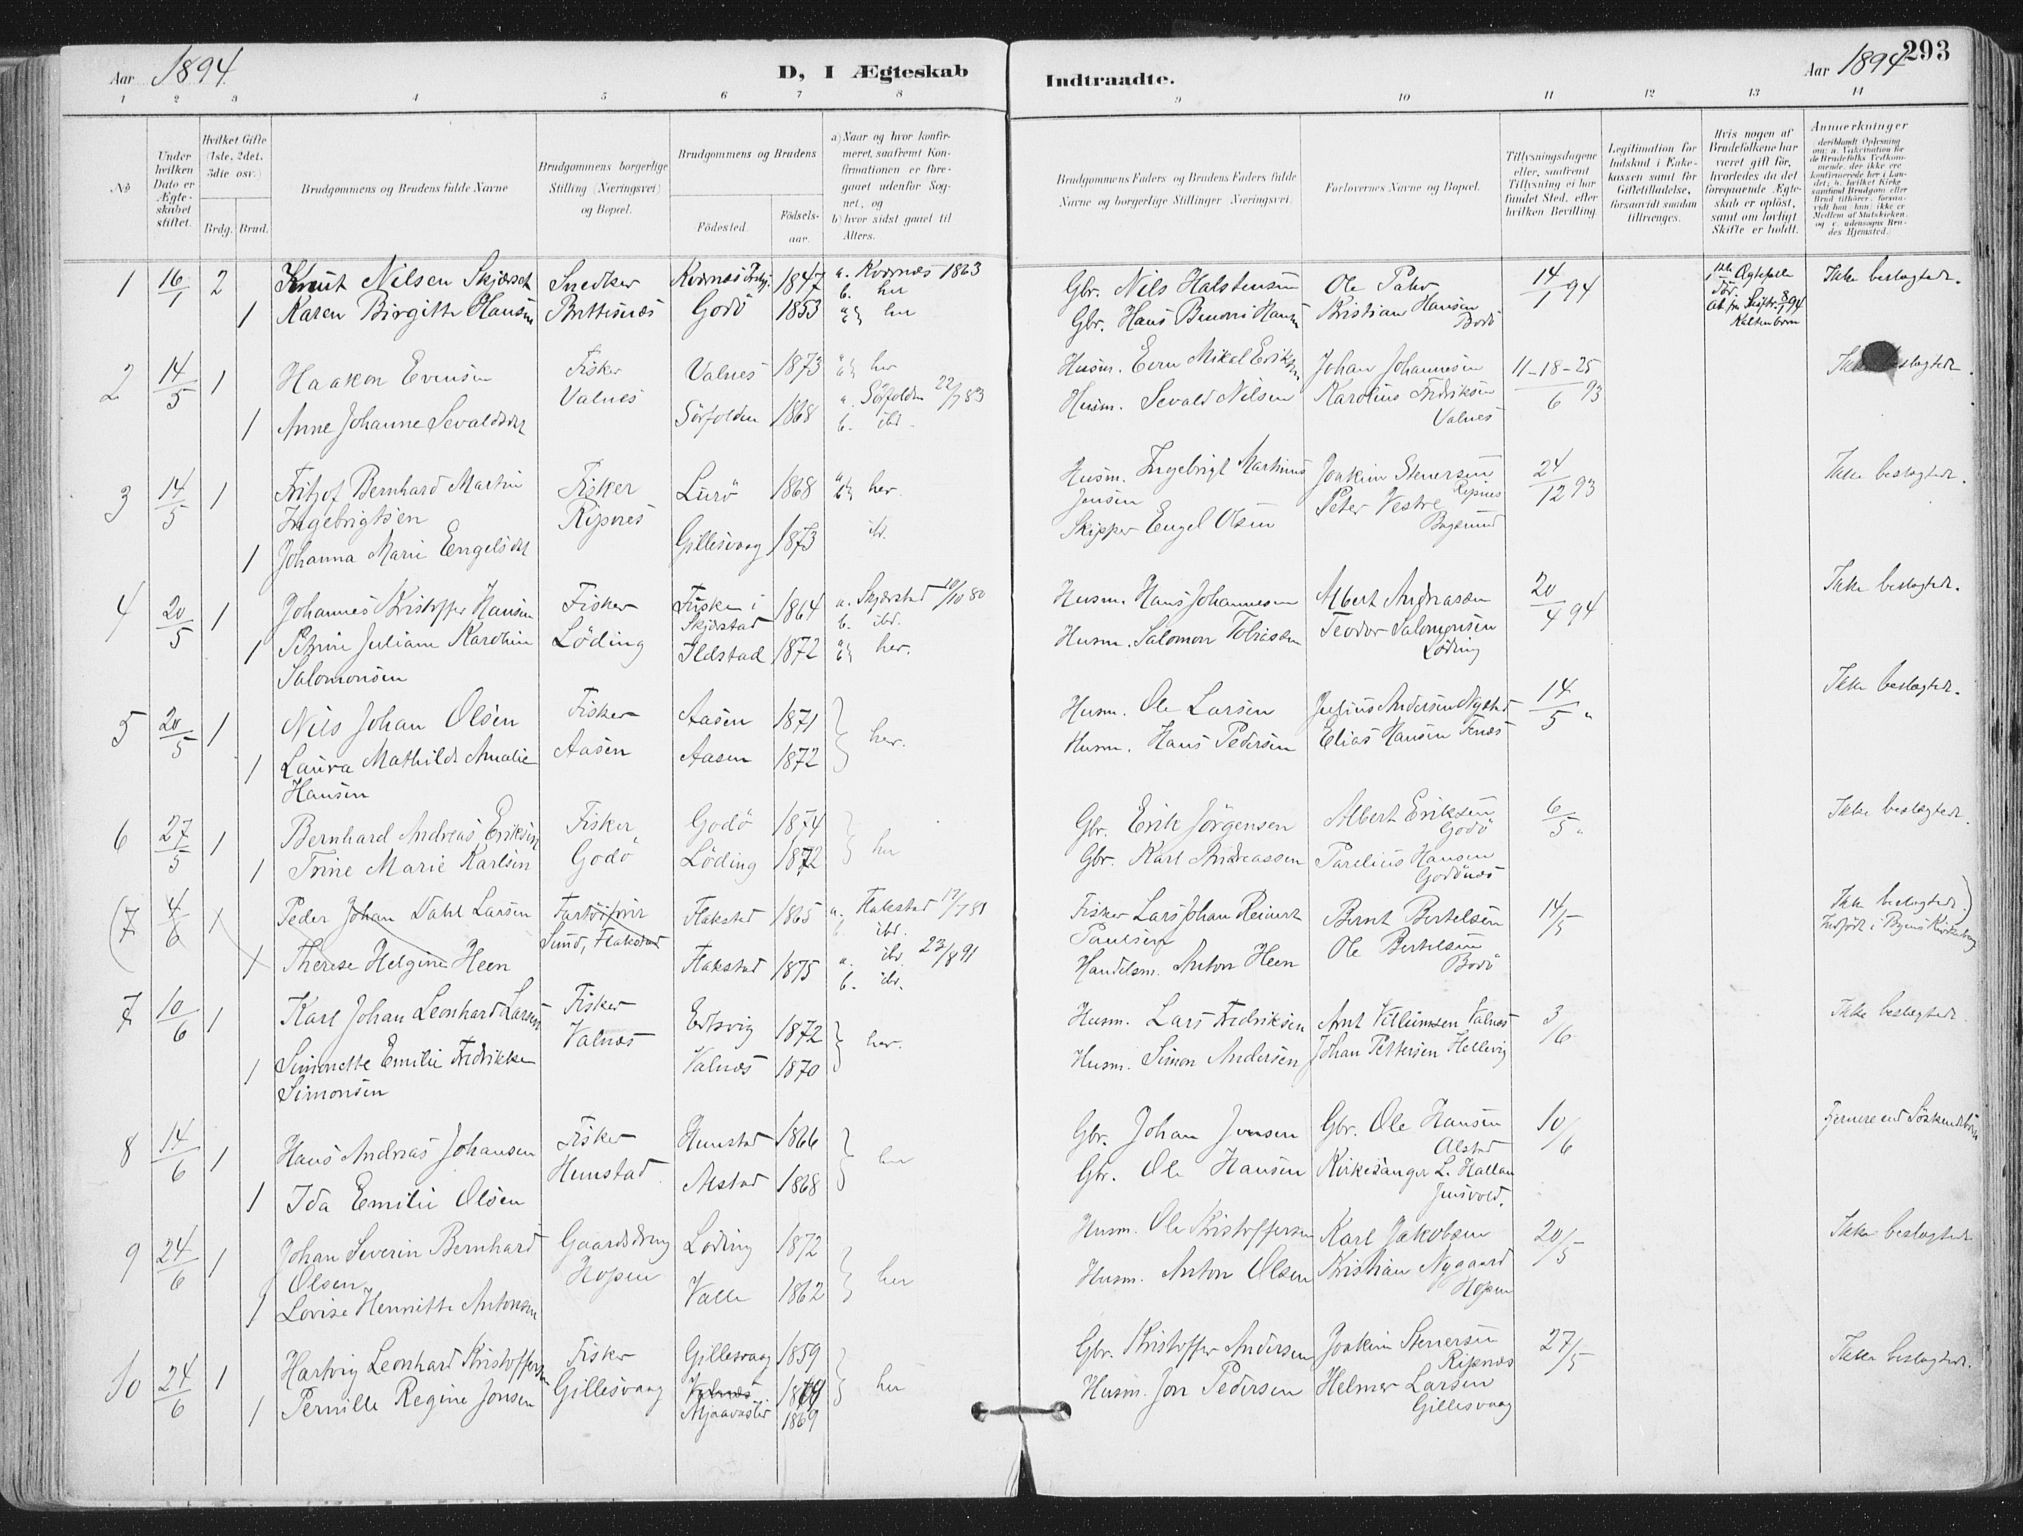 Aar 1894
D, I Ægteskab
Indtraadte.
Aar 1894
293
1 2 3 4 5 6 7 8 9 10 11 12 13 14
No
Under hvilken Dato er Ægteskabet stiftet.
Hvilket Gifte (1ste, 2det, 3die osv.)
Brdg. Brud.
Brudgommens og Brudens fulde Navne
Brudgommens borgerlige Stilling (Næringsvei) og Bopæl.
Brudgommens og Brudens
Fødested.
Fødselsaar.
a) Naar og hvor konfirmeret, saafremt Konfirmationen er foregaaet udenfor Sognet, og
b) hvor sidst gaaet til Alters.
Brudgommens Faders og Brudens Faders fulde Navne og borgerlige Stillinger (Næringsvei).
Forlovernes Navne og Bopæl.
Tillysningsdagene eller, saafremt Tillysning ei har fundet Sted, efter hvilken Bevilling.
Legitimation for Indskud i Enkekassen samt for Giftetilladelse, forsaavidt saadan tiltrenges.
Hvis nogen af Brudefolkene har været gift før, hvorledes da det foregaaende Ægteskab er opløst, samt om lovligt Skifte er holdt.
Anmærkninger
1 16/1 2 Knut Nilsen Skjærset Snedker Kvernes 1847 a. Kvernes 1863 Gbr. Nils Halstensen Ole 14/1 94 Ikke beslægtede.
b. her
1 Karen Birgitte Hansen Godø 1853 her Gbr. Hans Hansen Kristian Hansen
Bodø
2 14/5 1 Haakon Evensen Fisker Valnes 1873 her Husm. Even Mikal Johan Johannesen 11-18-25/6 93 Ikke beslægtede.
Valnes
1 Anne Johanne Sevaldsdtr Sørfolden 1868 a. Sørfolden 22/7 83 Husm. Sevald Nilsen Karolius Fredriksen
b. ibd. Valnes
3 14/5 1 Fritjof Bernhard Martin Fisker Lurø 1868 her. Husm. Ingebrigt Martinus Joakim Stenersen 24/12 93 Ikke beslægtede.
Ingebrigtsen Ripnes Jensen Ripnes
Peter Vestre
1 Johanna Marie Engelsdtr Gillesvaag 1873 ibd. Skipper Engel Olsen
4 20/5 1 Johannes Kristoffer Hansen Fisker Fusken i 1864 a. Skjerstad 10/10 80 Husm. Hans Johannesen Albert Andreassen 20/4 94 Ikke beslægtede.
Skjerstad b. ibd.
1 Petrine Juliane Karoline Løding Ildstad 1872 her. Husm. Salomon Tobiassen Teodor Salomonsen
Salomonsen Løding
5 20/5 1 Nils Johan Olsen Fisker Aasen 1871 her. Husm. Ole Larsen Julius Andersen 14/5 Ikke beslægtede.
1 Laura Mathilde Amalie Aasen Aasen 1872 Husm. Hans Pedersen Elias Hansen
Hansen
6 27/5 1 Bernhard Andreas Eriksen Fisker Godø 1874 her Gbr. Erik Jørgensen Albert Eriksen 6/5 Ikke beslægtede.
Godø
1 Trine Marie Karlsen Godø Løding 1872 Gbr. Karl Andreassen Parelius Hansen
Godønes
(7 4/6 1 Peder Johan Dahl Larsen Flakstad 1865 a. Flakstad 17/7 81 Fisker Lars Johan Reinert Bernt Bertelsen 14/5 Ikke beslægtede.
Sund, Flakstad ibd. Paulsen
1 Therese Helgine Heen Flakstad 1875 a. ibd. 23/8 91 Handelsm. Anton Heen Ole Bertelsen
b. ibd. Bodø
7 10/6 1 Karl Johan Leonhard Larsen Fisker Edsvig 1872 her. Husm. Lars Fredriksen Arnt Villumsen Valnes 3/6 Ikke beslægtede.
Valnes
1 Simonette Emilie Fredrikke Valnes 1870 Husm. Simon Andersen Johan Pettersen Hellevig
Simonsen
8 14/6 1 Hans Andreas Johansen Fisker Hunstad 1866 her Gbr. Johan Jensen Gbr. Ole Hansen 10/6 Fjernere end Søskendebørn
Hunstad Alstad
1 Ida Emilie Olsen Alstad 1868 Gbr. Ole Hansen Kirkesanger L. Hallan
Jensvold.
9 24/6 1 Johan Severin Bernhard Gaardsdreng Løding 1872 her Husm. Ole Kristoffersen Karl Jakobsen 20/5 Ikke beslægtede.
Olsen Hopen
1 Lovise Henritte Antonsen Valle 1862 Husm. Anton Olsen Kristian Nygaard
Hopen
10 24/6 1 Hartvig Leonhard Kristoffersen Fisker Gillesvaag 1859 her Gbr. Kristoffer Andersen Joakim Stenersen 27/5 Ikke beslægtede.
Ripnes
1 Pernille Regine Jonsen Gillesvaag Valnes Husm. Jon Pedersen Helmer Larsen
1869 Gillesvaag